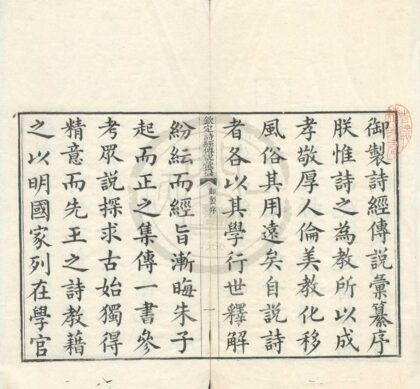 御製詩經傳說彙纂序
朕惟詩之為教所以成
孝敬厚人倫美教化移
風俗其用遠矣自說詩
者各以其學行世釋解
欽定詩經傳說彙纂 御製序 一
紛紜而經旨漸晦朱子
起而正之集傳一書參
考眾說探求古始獨得
精意而先王之詩教藉
之以明國家列在學官